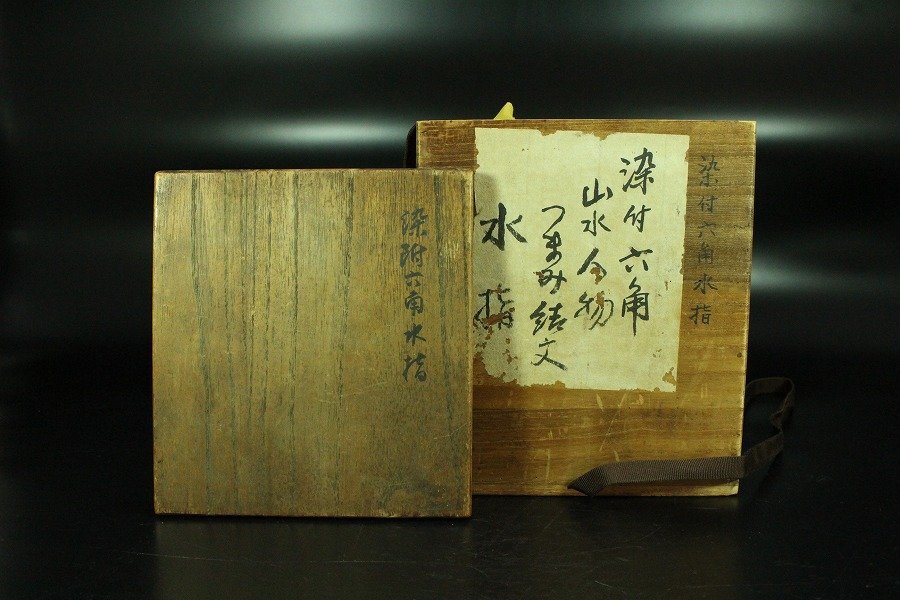 染付六角水指
染付六角
山水人物
つまみ結文
水指
染附六角水指